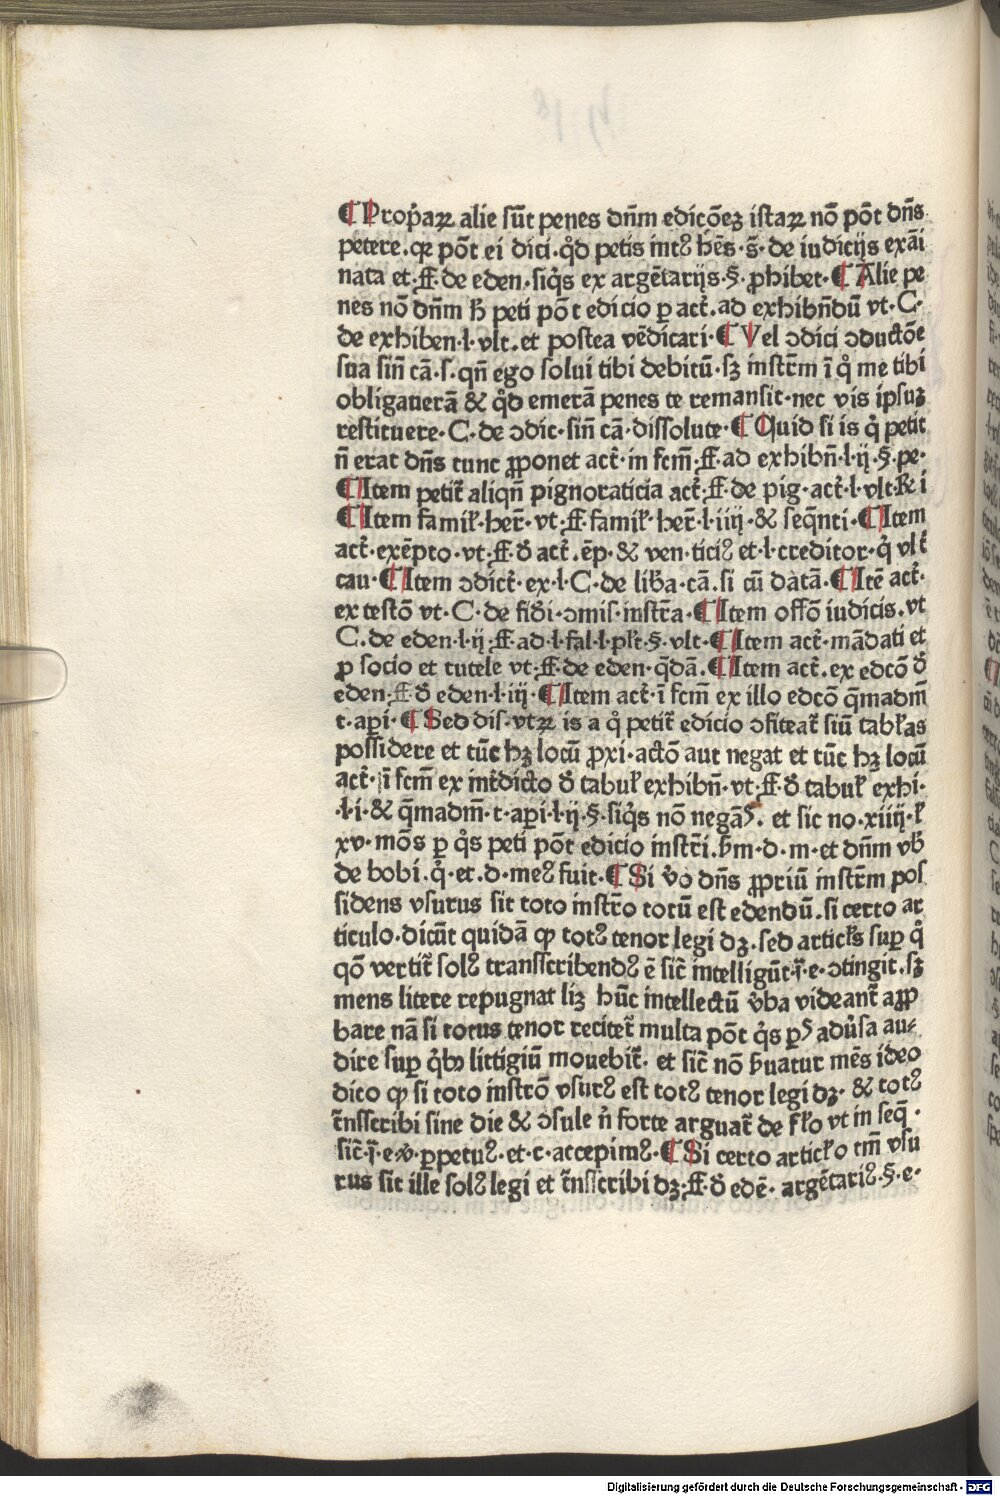 ¶ Prop̃aꝝ alie sũt penes dñm edicõeꝫ istaꝝ nõ põt dñs
petere. qꝛ põt ei dici. q̊d petis intꝰ hẽs · s̃ · de iudicijs exãi
nata et · ff · de eden · siq̊s ex argẽtarijs · § · ꝓhibet · ¶ Alie pe
nes nõ dñm ꝉꝫ peti põt edicio ꝑ act̃. ad exhibñdũ vt · C ·
de exhiben · l · vlt. et postea vẽdicari · ¶ Vel ↄdici ↄductõe
sua siñ cã · s · qñ ego solui tibi debitũ · sꝫ instr̃m ĩ q̊ me tibi
obligauerã & q̊d emerã penes te remansit · nec vis ipsuꝫ
restituere · C · de ↄdic · siñ cã · dissolute · ¶ Quid si is q̊ petit
ñ erat dñs tunc ꝓponet act̃ · in fcm̃ · ff · ad exhibñ · l · ij · § · pe ·
¶ Item petit̃ aliqñ pignoraticia act̃ · ff · de pig · act̃ · l · vlt · R̃ i
¶ Item familꝰ · her̃ · vt · ff · familꝰ · her̃ · l · iiij · & seq̃nti · ¶ Item
act̃ · exẽpto · vt · ff · ð act̃ . ẽp · & ven · ticiꝰ et · l · creditor · q̊ vlt̃
cau · ¶ Item ↄdict̃ · ex · l · C · de lib̃a · cã . si cũ datã · ¶ Itẽ act̃ ·
ex testõ vt · C · de fið̃i · ↄmis · instr̃a · ¶ Item offõ iudicis . vt
C . de eden · l · ij · ff · ad · l · fal · l · pꝉt · § · vlt · ¶ Item act̃ · mãdati et
ꝓ socio et tutele vt · ff · de eden · q̃dã . ¶ Item act̃ . ex edcõ ð
eden · ff · ð eden · l · iij · ¶ Item act̃ · ĩ fcm̃ ex illo edcõ q̃madm̃
t · aꝑi · ¶ Sed dis · vtꝝ is a q̊ petit̃ edicio ↄfiteat̃ siũ tabꝉas
possidere et tũc hꝫ locũ ꝓxi · actõ aut negat et tũc hꝫ locũ
act̃ · ĩ fcm̃ ex int̃dicto ð tabuꝉ exhibñ · vt · ff · ð tabuꝉ exhi ·
· l · i · & q̃madm̃ · t · aꝑi · l · ij · § · siq̊s nõ negãs . et sic no · xiiij · ꝉ
xv · mõs ꝑ q̊s peti põt edicio instr̃i . ƀm · d · m · et dñm vb̊
de bobi . q̊ · et . d · meꝰ fuit · ¶ Si v̊o dñs ꝓpriũ instr̃m pos
sidens vsurus sit toto instr̃o totũ est edendũ . si certo ar
ticulo · dicũt quidã ꝙ totꝰ tenor legi dꝫ . sed articꝉs suꝑ q̊
qõ vertit̃ solꝰ transscribendꝰ ẽ sic̃ intelligũt · ĩ · e · ↄtingit . sꝫ
mens litere repugnat liꝫ hũc intellectũ v̊ba videant̃ aꝓꝓ
bare nã si totus tenor recitet̃ multa põt q̊s ꝑs adv̊sa au⸗
dire suꝑ q̊bꝰ littigiũ mouebit̃ · et sic̃ nõ ƀuatur mẽs ideo
dico ꝙ si toto instrõ vsurꝰ est totꝰ tenor legi dꝫ · & totꝰ
t̃nsscribi sine die & ↄsule ñ forte arguat̃ de fꝉo vt in seq̃ ·
sic̃ · ĩ · e · v̊ · ꝑpetuꝰ · et · c · accepimꝰ · ¶ Si certo articꝉo tm̃ vsu
rus sit ille solꝰ legi et t̃nsscribi dꝫ · ff · ð edẽ · argẽtariꝰ · § · e ·
Digitalisierung gefördert durch die Deutsche Forschungsgemeinschaft - DFG